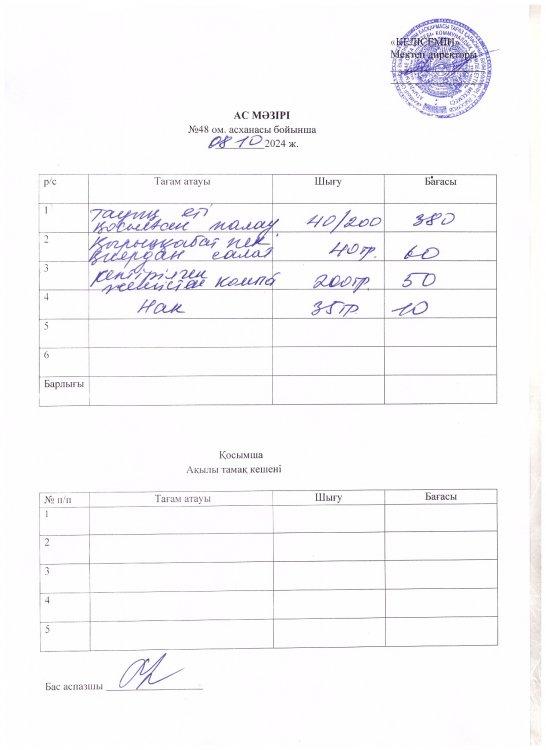 «КЕЛІСЕМІН»
Мектеп директоры
АС МӘЗІРІ
№48 ом. асханасы бойынша
08 10 2024 ж.
р/с Тағам атауы Шығу Бағасы
1 тауық еті қосылған палау 40/200 380
2 Қырыққабат пен қиярдан салат 40гр. 60
3 кептірілген жемістен компа 200гр. 50
4 Нан 35гр 10
5
6
Барлығы
Қосымша
Ақылы тамақ кешені
№ п/п Тағам атауы Шығу Бағасы
1
2
3
4
5
Бас аспазшы